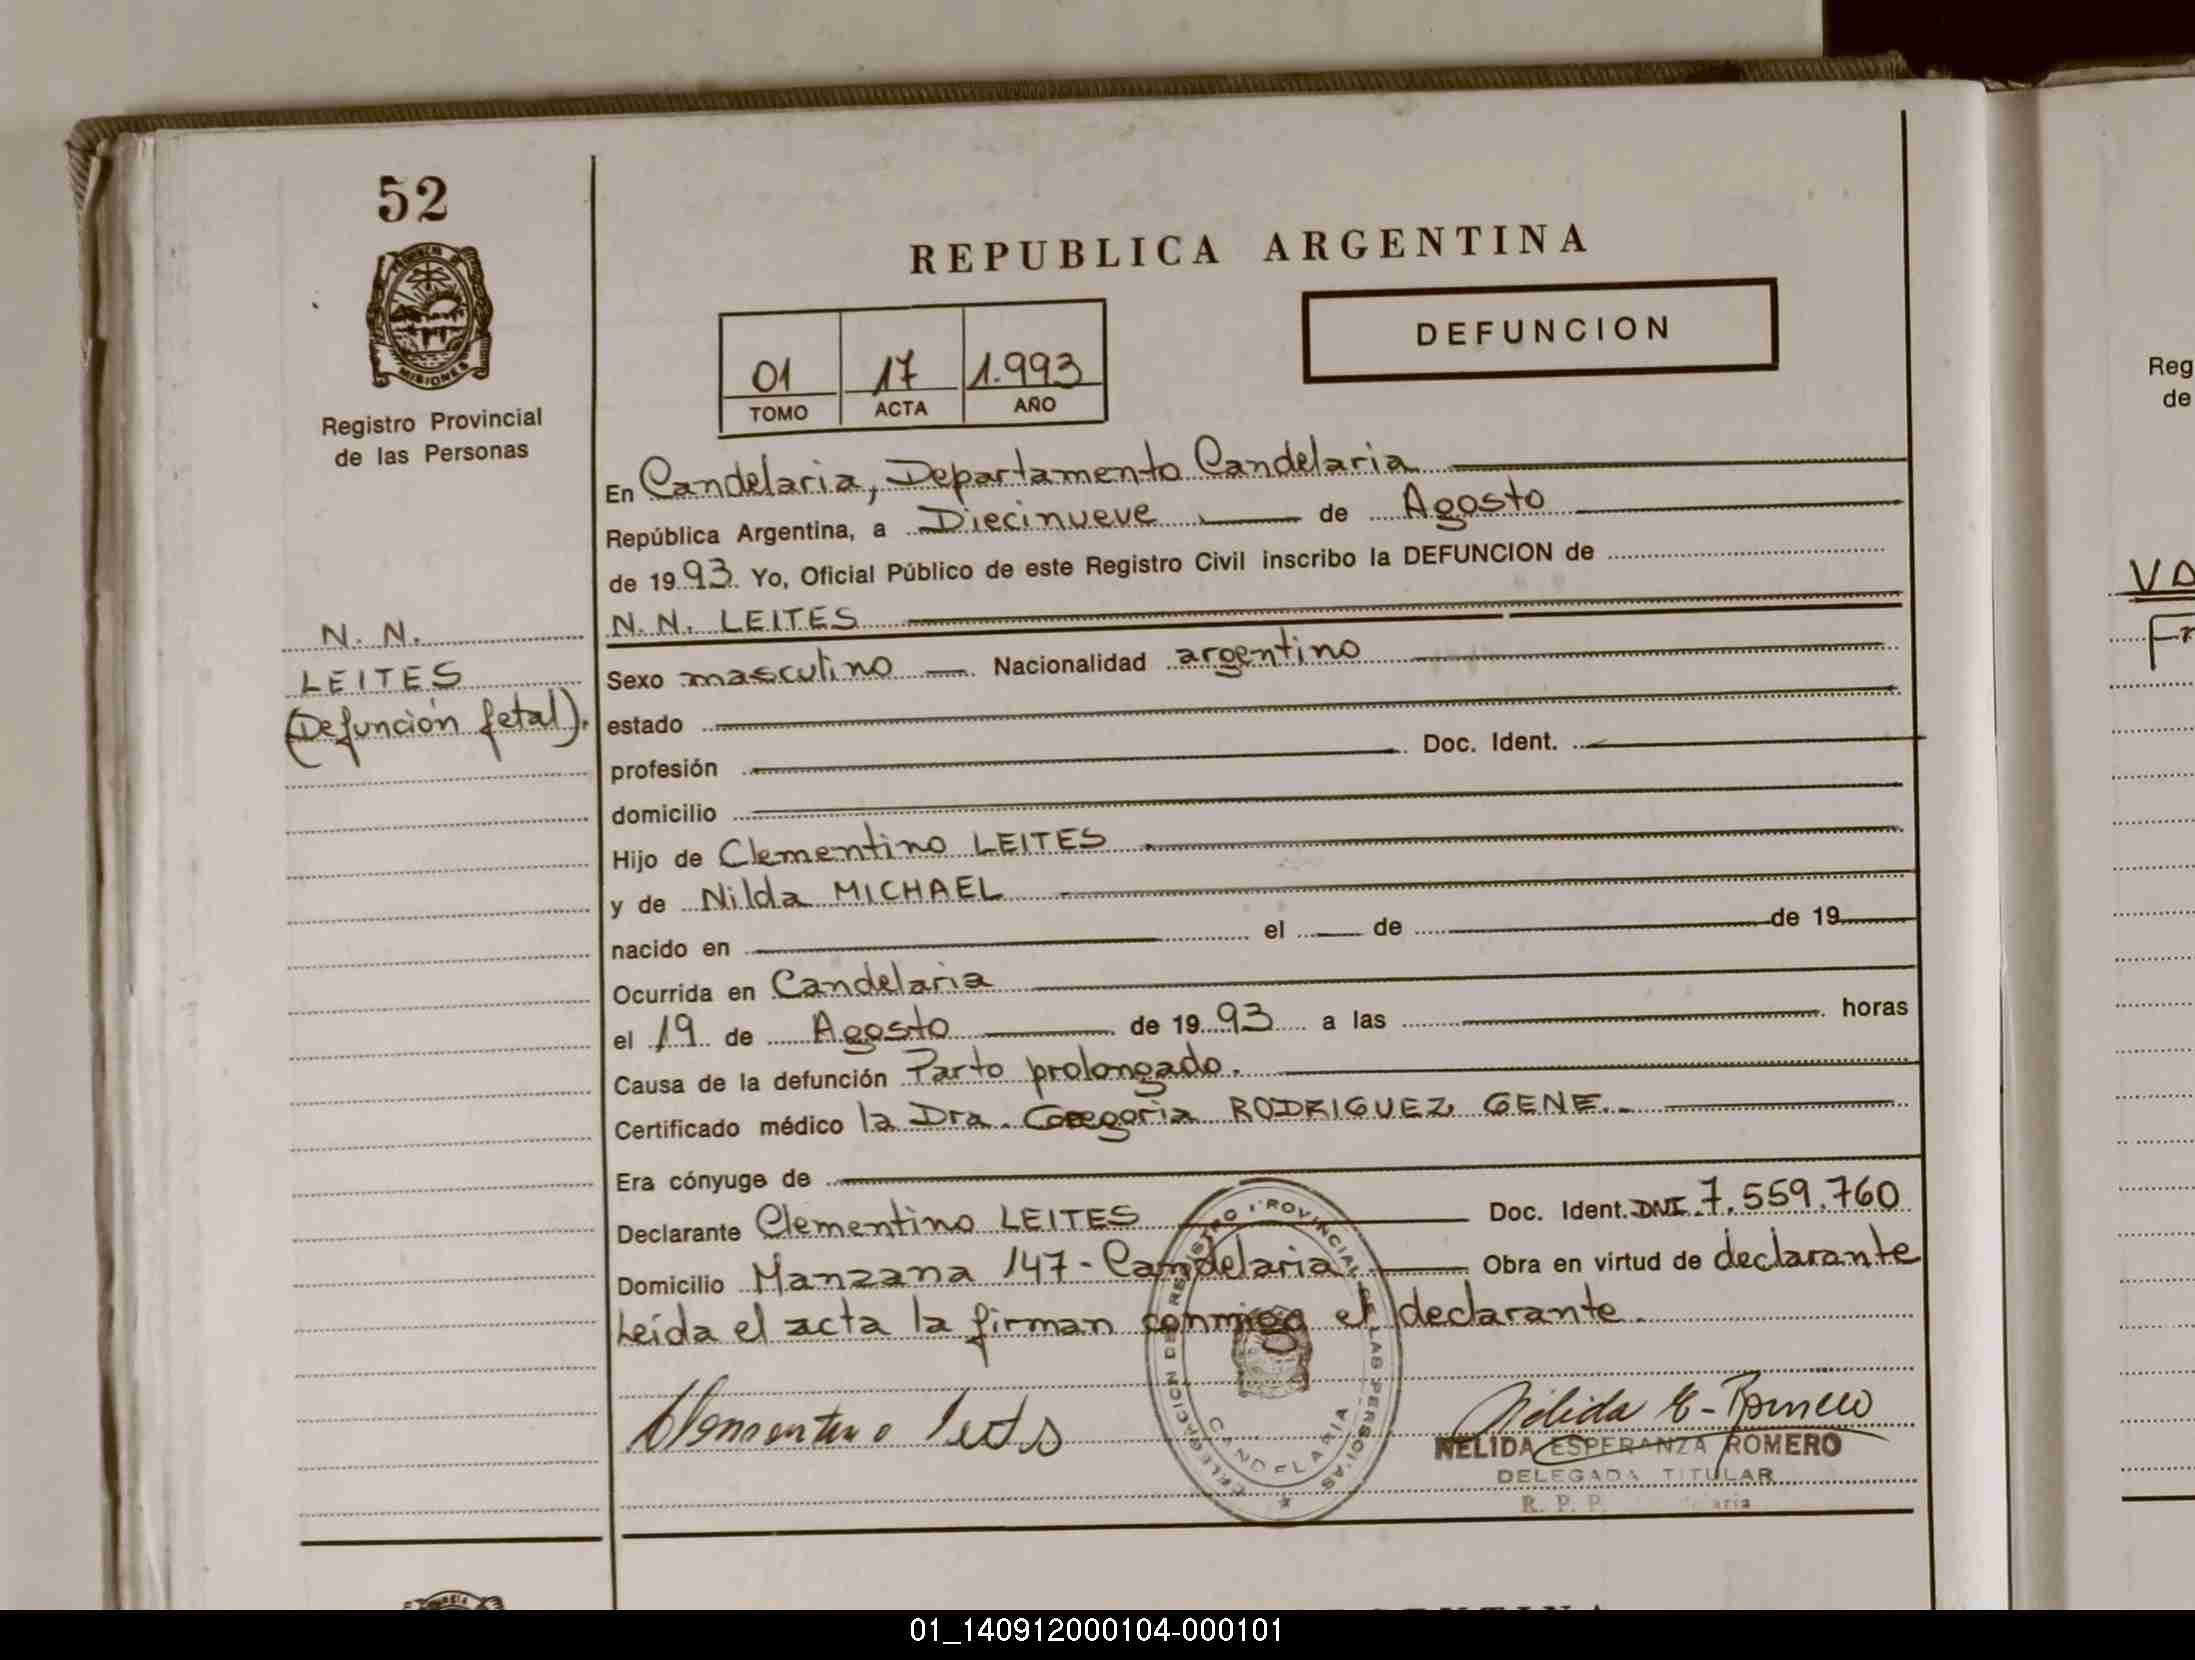 52
MISIONES
Registro Provincial
de las Personas
N. N.
LEITES
(Defunción fetal).
REPUBLICA ARGENTINA
DEFUNCION
01 17 1.993
TOMO ACTA AÑO
En Candelaria, Departamento Candelaria
República Argentina, a Diecinueve de Agosto
de 19 93. Yo, Oficial Público de este Registro Civil inscribo la DEFUNCION de
N. N. LEITES
Sexo masculino Nacionalidad argentino
estado
profesión Doc. Ident.
domicilio
Hijo de Clementino LEITES
y de Nilda MICHAEL
nacido en el de de 19
Ocurrida en Candelaria
el 19 de Agosto de 19 93 a las horas
Causa de la defunción Parto prolongado.
Certificado médico la Dra. Gregoria RODRIGUEZ GENE.-
Era cónyuge de
Declarante Clementino LEITES Doc. Ident. DNI. 7.559.760
Domicilio Manzana 147 - Candelaria Obra en virtud de declarante
Leída el acta la firman conmigo el declarante.
DELEGACION DEL REGISTRO PROVINCIAL DE LAS PERSONAS
CANDELARIA
Clementino Leites
Nélida E. Romero
NELIDA ESPERANZA ROMERO
DELEGADA TITULAR
R. P. P.
Reg
de
VA
Fr
01_140912000104-000101